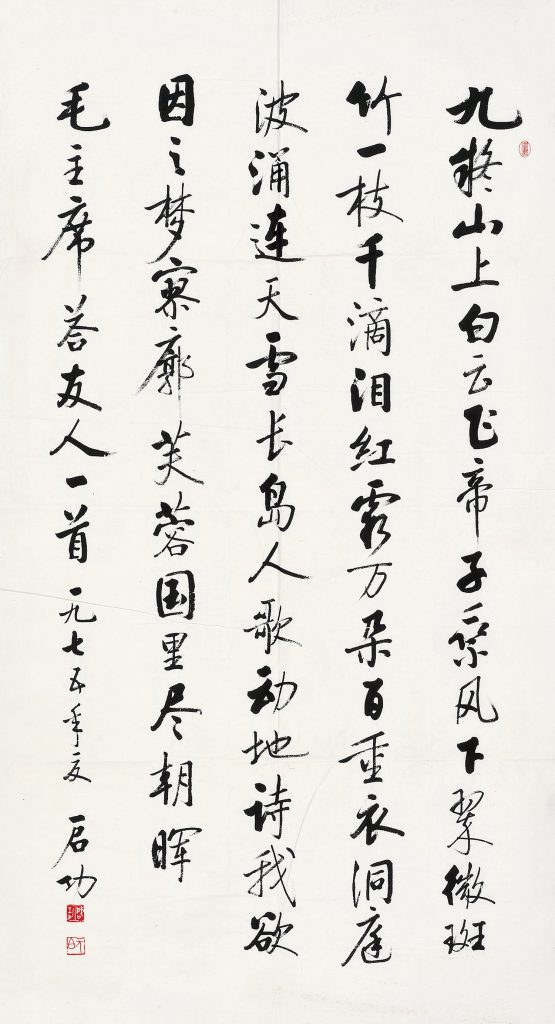 九疑山上白云飞帝子乘风下翠微斑
竹一枝千滴泪红霞万朵百重衣洞庭
波涌连天雪长岛人歌动地诗我欲
因之梦寥廓芙蓉国里尽朝晖
毛主席答友人一首 一九七五年夏 启功